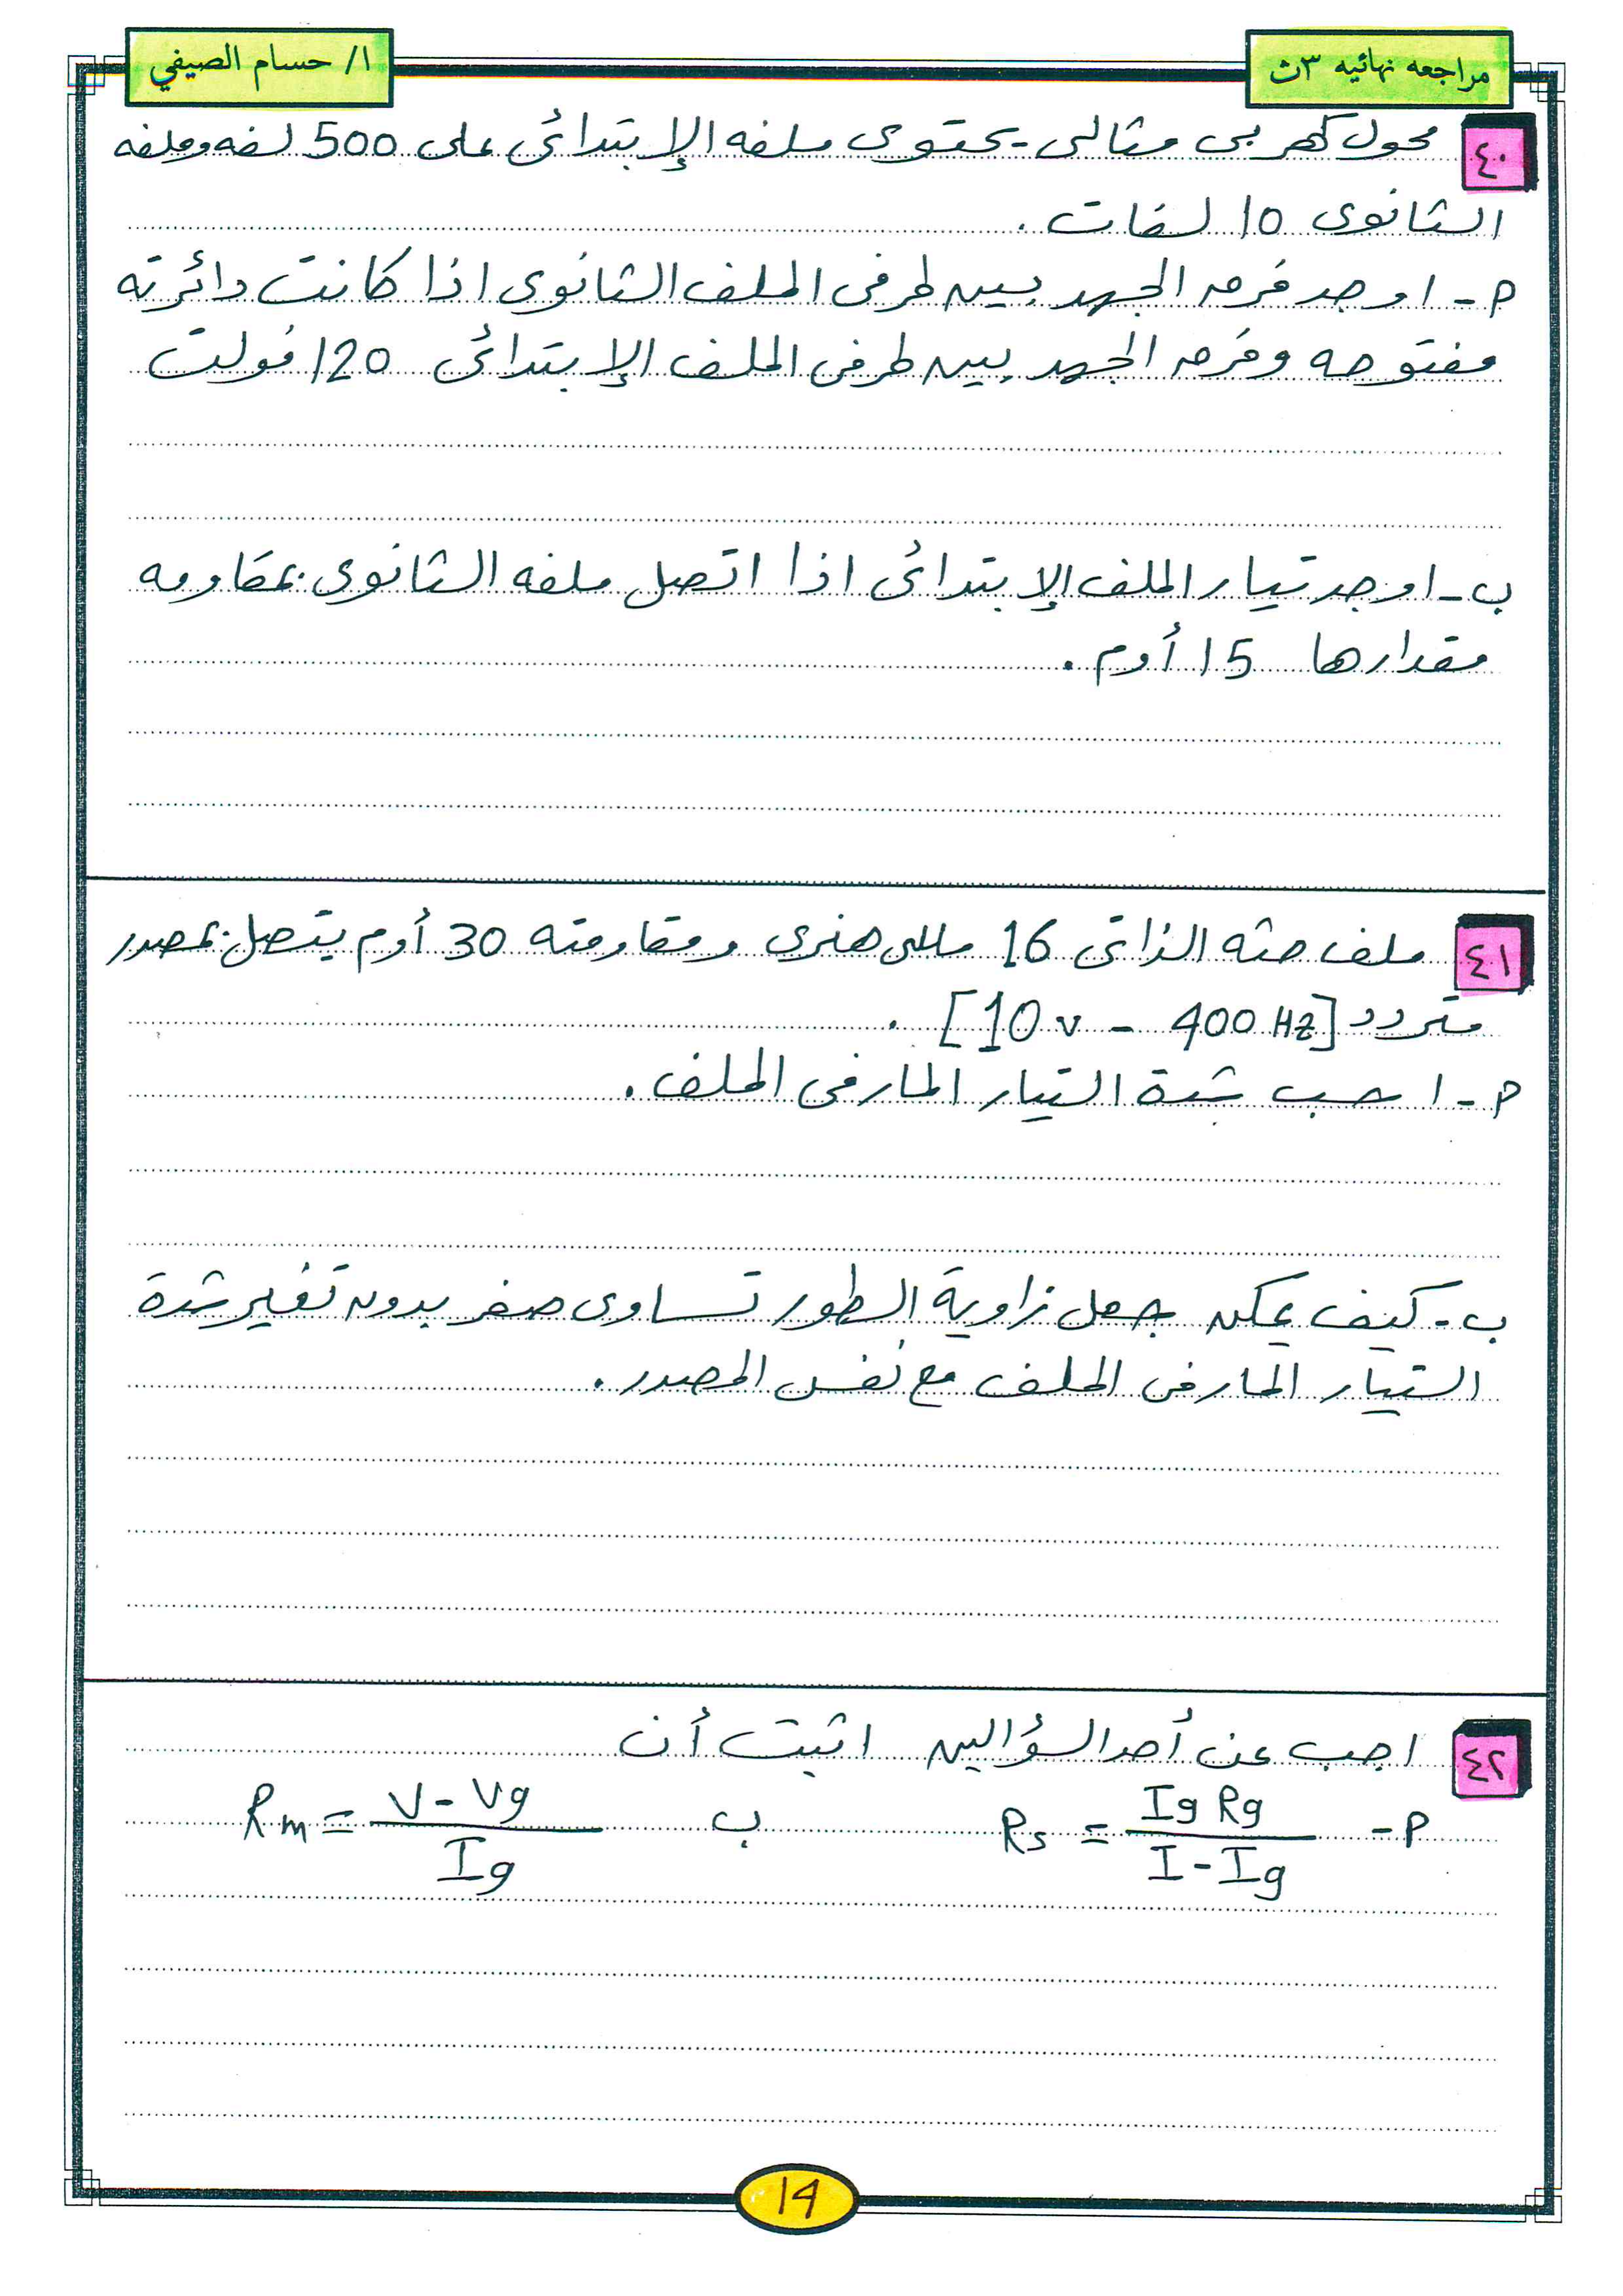 مراجعه نهائيه ٣ث
ا/ حسام الصيفي
٤٠ محول كهربى مثالى يحتوى ملفه الإبتدائى على 500 لفه وملفه
الثانوى 10 لفات .
م - اوجد فرق الجهد بين طرفى الملف الثانوى اذا كانت دائرته
مفتوحه وفرق الجهد بين طرفى الملف الإبتدائى 120 فولت
ب - اوجد تيار الملف الإبتدائى اذا اتصل ملفه الثانوى بمقاومه
مقدارها 15 أوم .
٤١ ملف حثه الذاتى 16 مللى هنرى ومقاومته 30 أوم يتصل بمصدر
متردد [10v - 400 Hz] .
م - احسب شدة التيار المار فى الملف .
ب - كيف يمكن جعل زاوية الطور تساوى صفر بدون تغير شدة
التيار المار فى الملف مع نفس المصدر .
٤٢ اجب عن أحد السؤالين اثبت أن
م - Rs = Ig Rg / I - Ig ب Rm = V - Vg / Ig
١٩